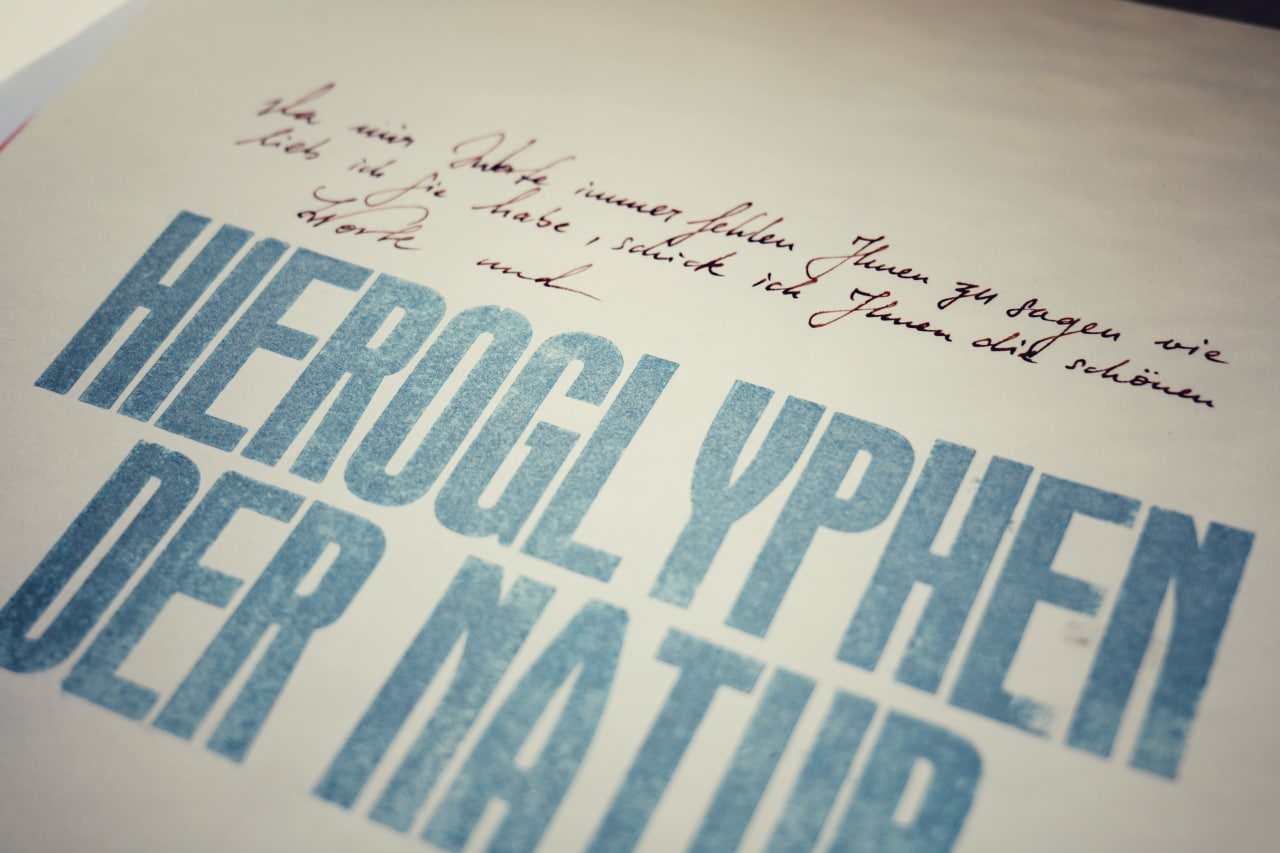 da mir Worte immer fehlen Ihnen zu sagen wie
lieb ich Sie habe, schick ich Ihnen die schönen
Worte und
HIEROGLYPHEN
DER NATUR